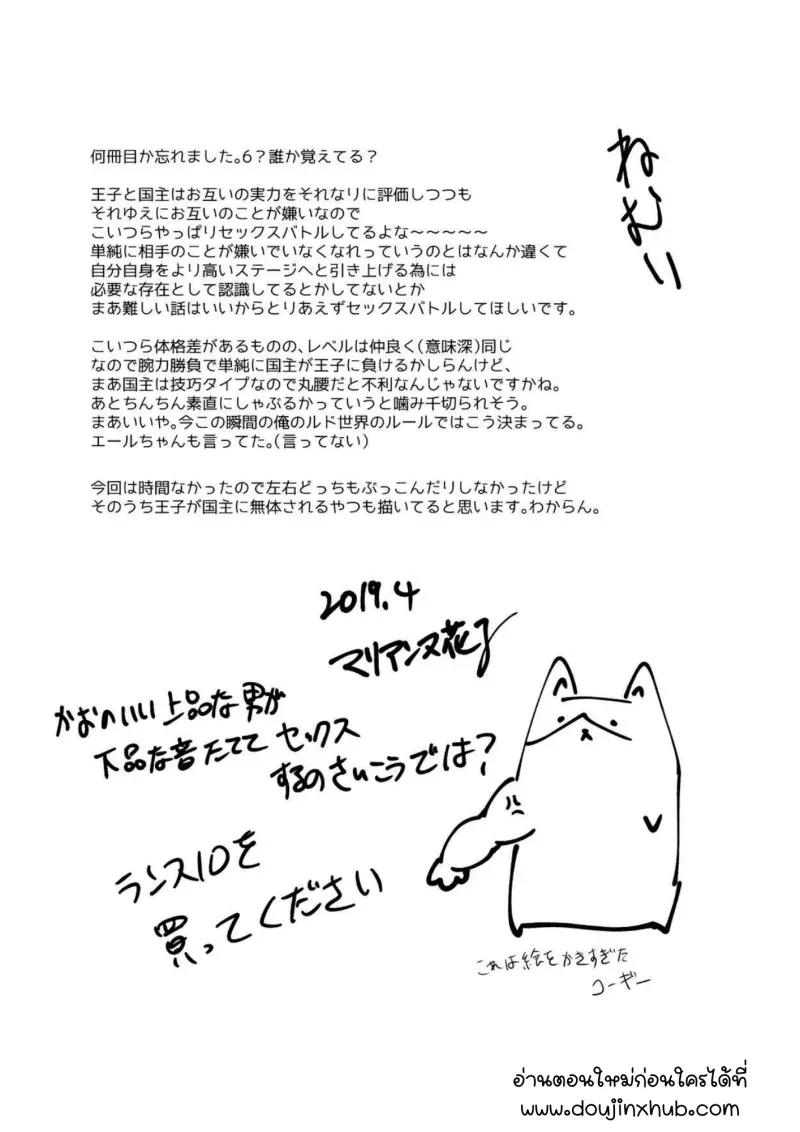 ねむい
何冊目か忘れました。6？誰か覚えてる？
王子と国主はお互いの実力をそれなりに評価しつつも
それゆえにお互いのことが嫌いなので
こいつらやっぱりセックスバトルしてるよな～～～～～
単純に相手のことが嫌いでいなくなれっていうのとはなんか違くて
自分自身をより高いステージへと引き上げる為には
必要な存在として認識してるとかしてないとか
まあ難しい話はいいからとりあえずセックスバトルしてほしいです。
こいつら体格差があるものの、レベルは仲良く（意味深）同じ
なので腕力勝負で単純に国主が王子に負けるかしらんけど、
まあ国主は技巧タイプなので丸腰だと不利なんじゃないですかね。
あとちんちん素直にしゃぶるかっていうと噛み千切られそう。
まあいいや。今この瞬間の俺のルド世界のルールではこう決まってる。
エールちゃんも言ってた。（言ってない）
今回は時間なかったので左右どっちもぶっこんだりしなかったけど
そのうち王子が国主に無体されるやつも描いてると思います。わからん。
2019.4
マリアンヌ花子
かおのいい上品な男が
下品な音たてて セックス
するのさいこうでは？
ランス10を
買ってください
これは絵をかきすぎた
コーギー
อ่านตอนใหม่ก่อนใครได้ที่
www.doujinxhub.com